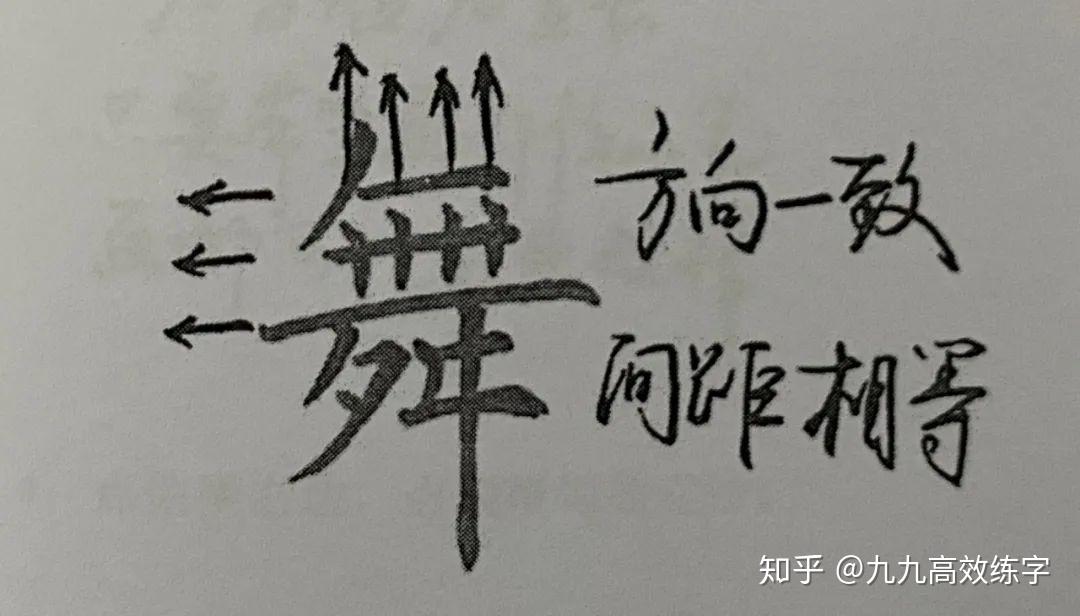 舞
方向一致
间距相等
知乎 @九九高效练字